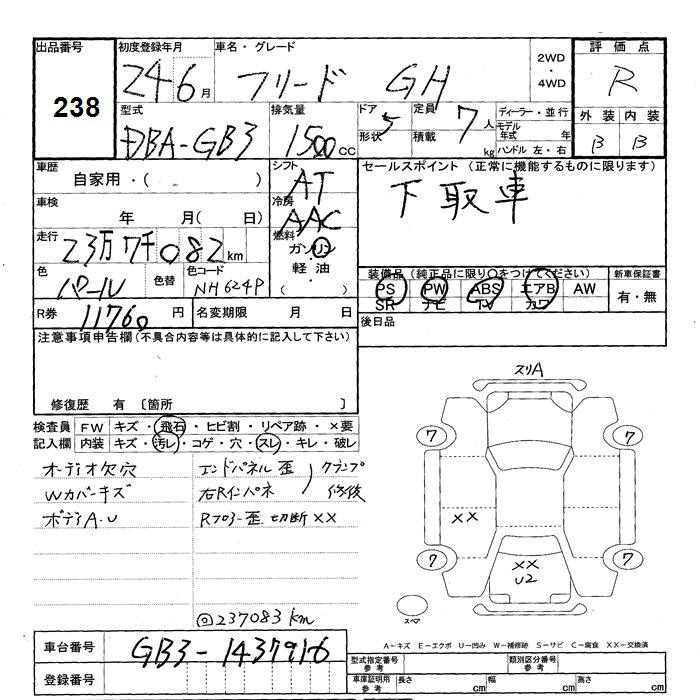 出品番号 初度登録年月 車名・グレード 2WD・4WD 評価点
238 24 6月 フリード GH R
型式 排気量 ドア 形状 定員 積載 ディーラー・並行 外装 内装
DBA-GB3 1500cc 5 7人 kg モデル年式 年 B B
ハンドル 左・右
車歴 シフト セールスポイント(正常に機能するものに限ります)
自家用・( ) AT 下取車
車検 年 月( 日) 冷房 AAC
走行 23万7千082km 燃料 ガソリン 軽油 ( ・ )
色 色替 色コード 装備品(純正品に限り○をつけてください) 新車保証書
パール NH624P PS PW ABS エアB AW 有・無
SR ナビ TV カワ
R券 11760円 名変期限 月 日 後日品
注意事項申告欄(不具合内容等は具体的に記入して下さい)
修復歴 有 〔箇所
検査員 FW キズ・飛石・ヒビ割・リペア跡・×要
記入欄 内装 キズ・汚レ・コゲ・穴・スレ・キレ・破レ
オーディオ欠穴 エンドパネル歪 クランプ
Wカバーキズ 右Rインパネ 修後
ボディA・U Rフロアー歪 切断××
◎237083km
スリA
7 7
××
7 7
××
U2
スペア
車台番号 GB3-1437916
登録番号
A-キズ E-エクボ U-凹み W-補修跡 S-サビ C-腐食 ××-交換済
型式指定番号 参考 類別区分番号 参考
車庫証明用 参考 長さ cm 幅 cm 高さ cm